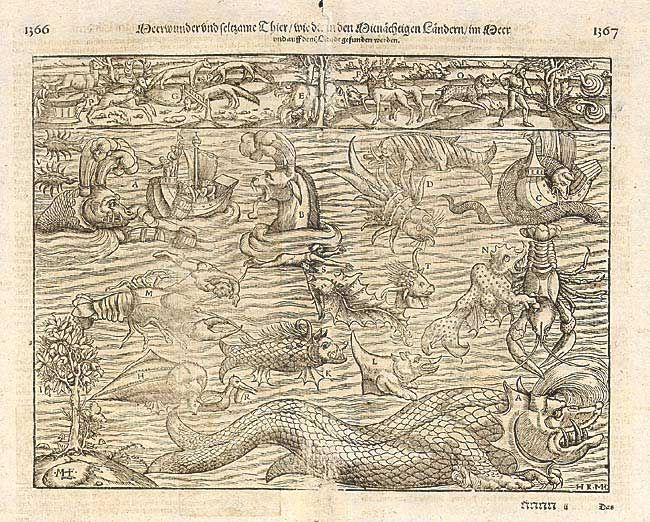 1366 Meerwunder vnd seltzame Thier/ wie in den Mitnächtigen Ländern/ im Meer 1367
vnd auff dem Lande gefunden werden.
O
A
B
C
D
S
T
N
M
I
H
R
K
L
M F
nnnn ij Das